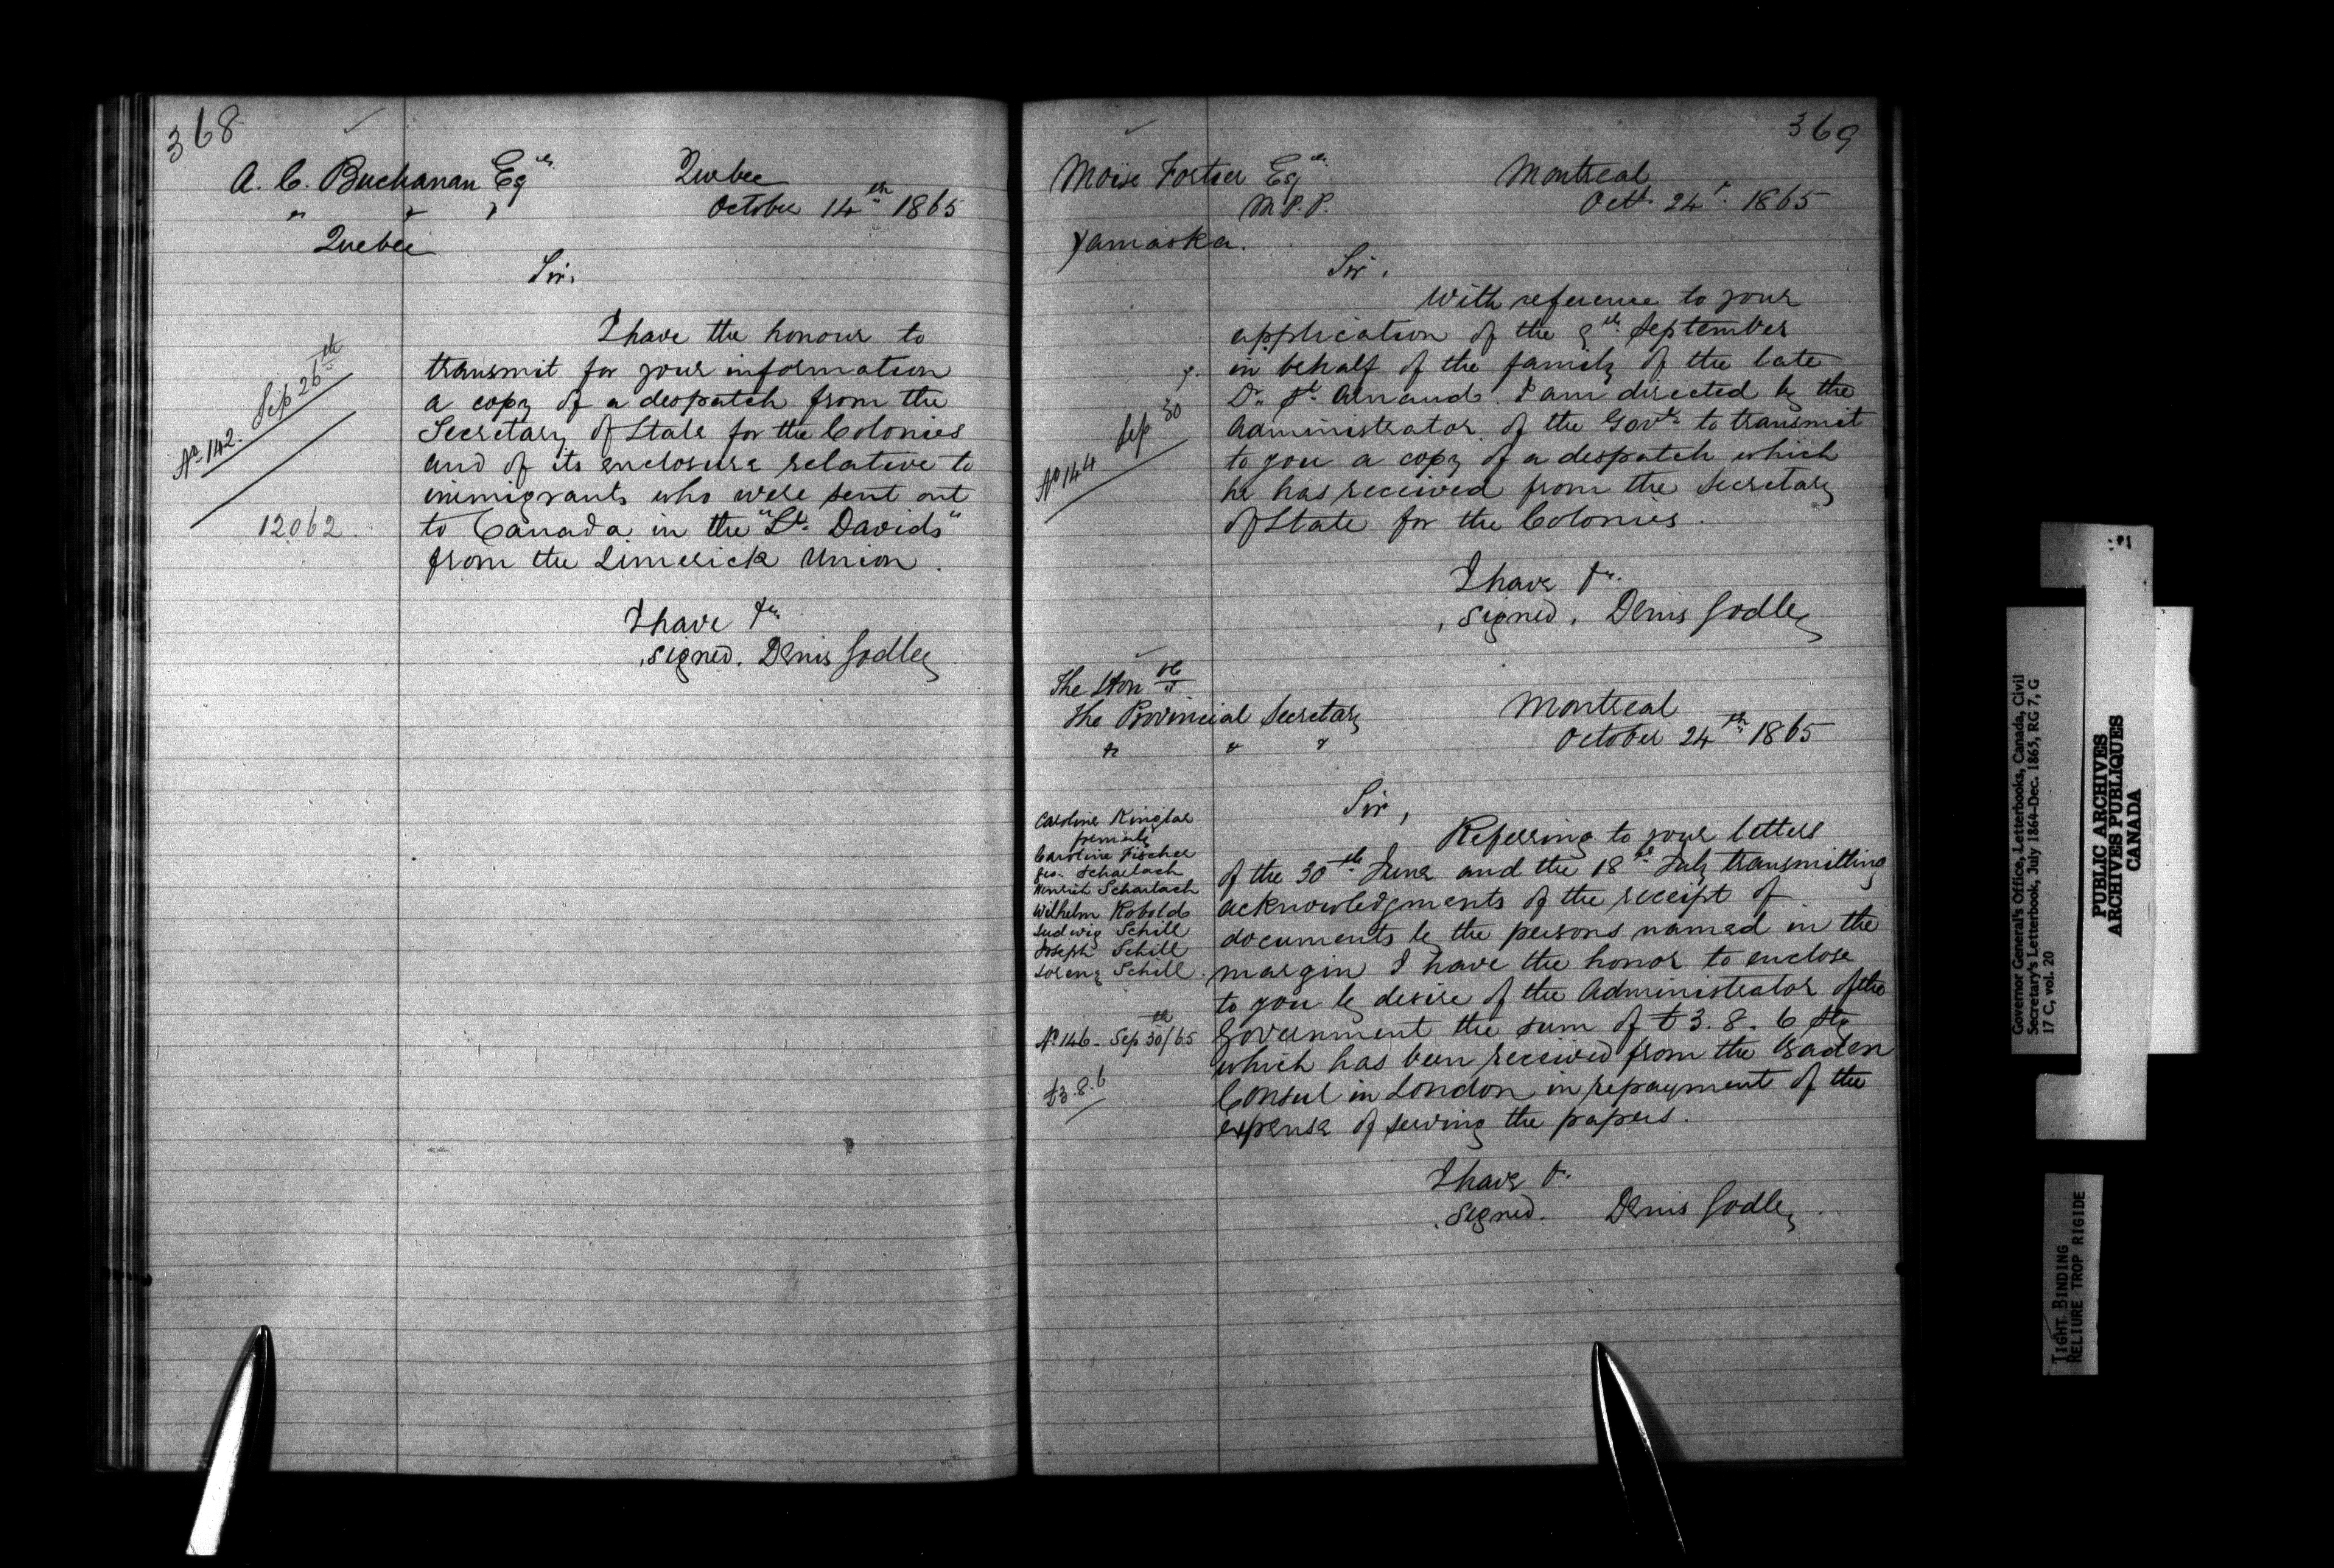 368
A. C. Buchanan Esqre
" " "
Quebec
Quebec
October 14th 1865
Sir,
I have the honour to
transmit for your information
a copy of a despatch from the
Secretary of State for the Colonies
and of its enclosure relative to
immigrants who were sent out
to Canada in the "St. Davids"
from the Limerick Union.
No. 142. Sep 26th
12062.
I have &c.
signed. Denis Godley
369
Moïse Fortier Esqre
M.P.P.
Yamaska.
Montreal
Octr. 24th. 1865
Sir,
With reference to your
application of the 9th September
in behalf of the family of the late
Dr. St. Arnaud. I am directed by the
Administrator of the Govt. to transmit
to you a copy of a despatch which
he has received from the Secretary
of State for the Colonies.
No 144 Sep 30
I have &c.
signed. Denis Godley
The Honble
The Provincial Secretary
& & &
Montreal
October 24th 1865
Sir,
Referring to your letters
of the 30th June and the 18th July transmitting
acknowledgments of the receipt of
documents by the persons named in the
margin I have the honor to enclose
to you by desire of the Administrator of the
Government the sum of £3. 8. 6 Stg
which has been received from the Baden
Consul in London in repayment of the
expense of serving the papers.
Caroline
formerly
Caroline Fischer
Geo. Scharlach
Henrich Scharlach
Wilhelm Robold
Ludwig Schill
Joseph Schill
Lorenz Schill.
No 146 - Sep 30th/65
£3.8.6
I have &c.
signed. Denis Godley.
Governor General's Office, Letterbooks, Canada, Civil
Secretary's Letterbook, July 1864-Dec. 1865, RG 7, G
17 C, vol. 20
PUBLIC ARCHIVES
ARCHIVES PUBLIQUES
CANADA
TIGHT BINDING
RELIURE TROP RIGIDE